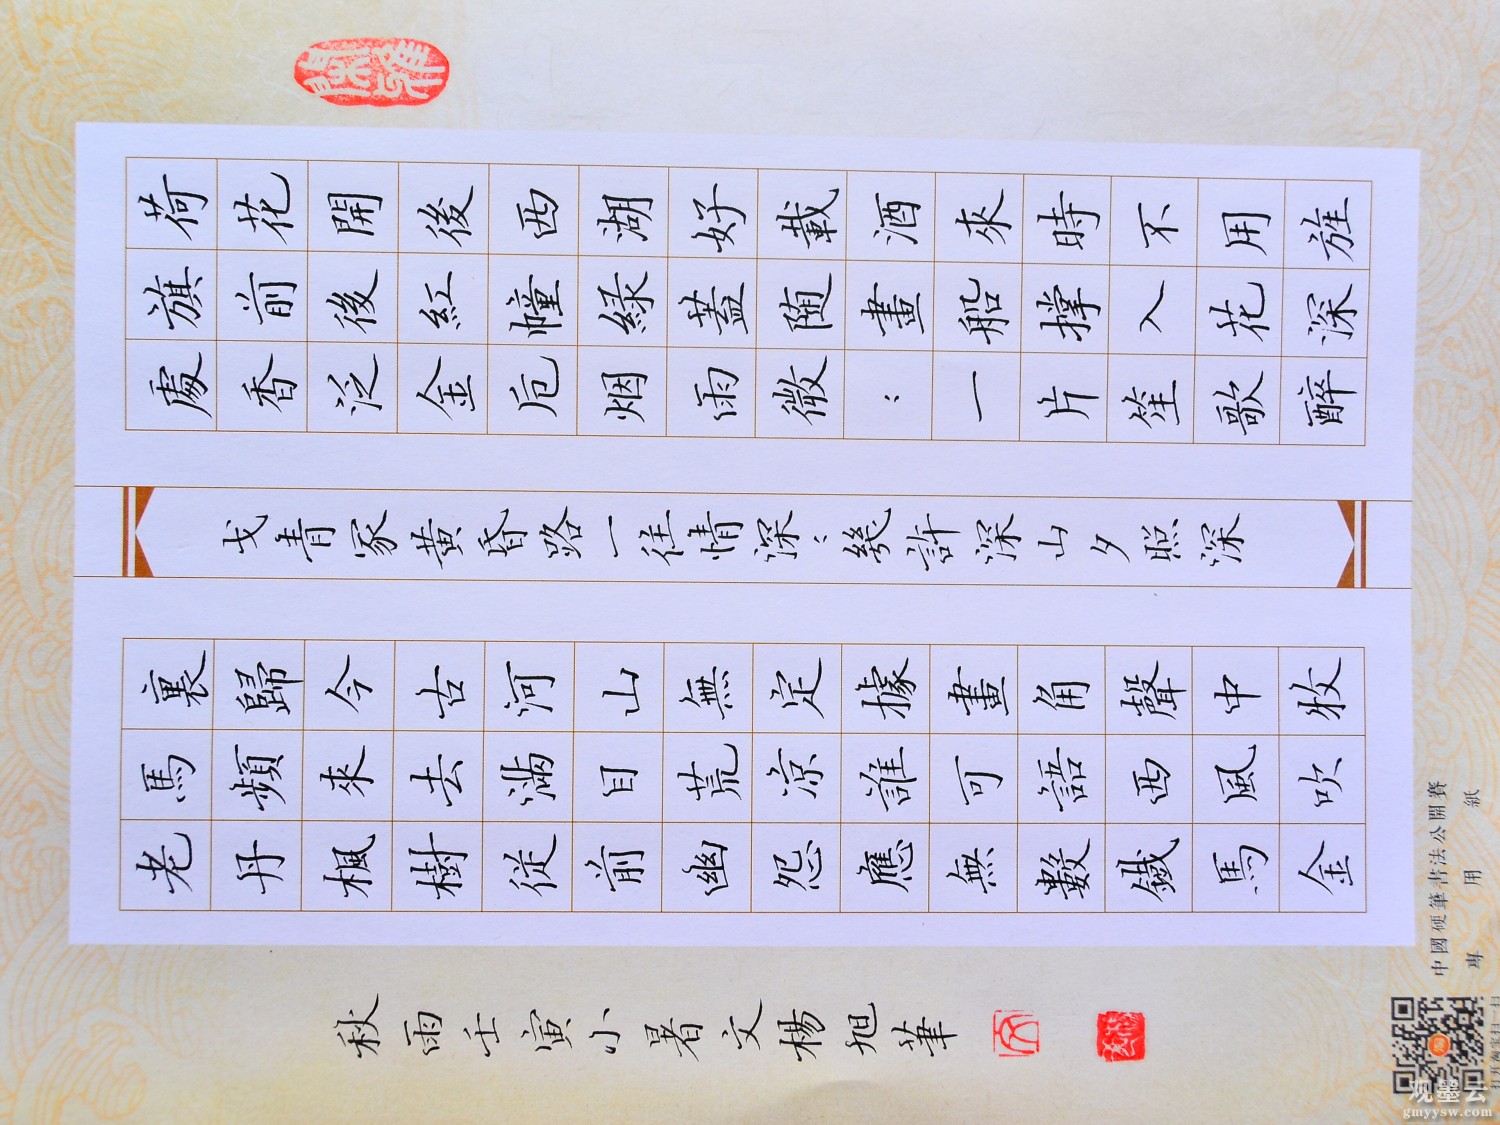 荷花開後西湖好載酒來時不用旌
旗前後紅幢緑蓋随畫船撑入花深
處香泛金卮烟雨微〻一片笙歌醉
裏歸今古河山無定據畫角聲中牧
馬頻來去滿目荒凉誰可語西風吹
老丹楓樹從前幽怨應無數鐵馬金
戈青冢黄昏路一往情深〻幾許深山夕照深
秋雨壬寅小暑文楊旭筆
中國硬筆書法公開賽
專用紙
观墨云
gmyysw.com